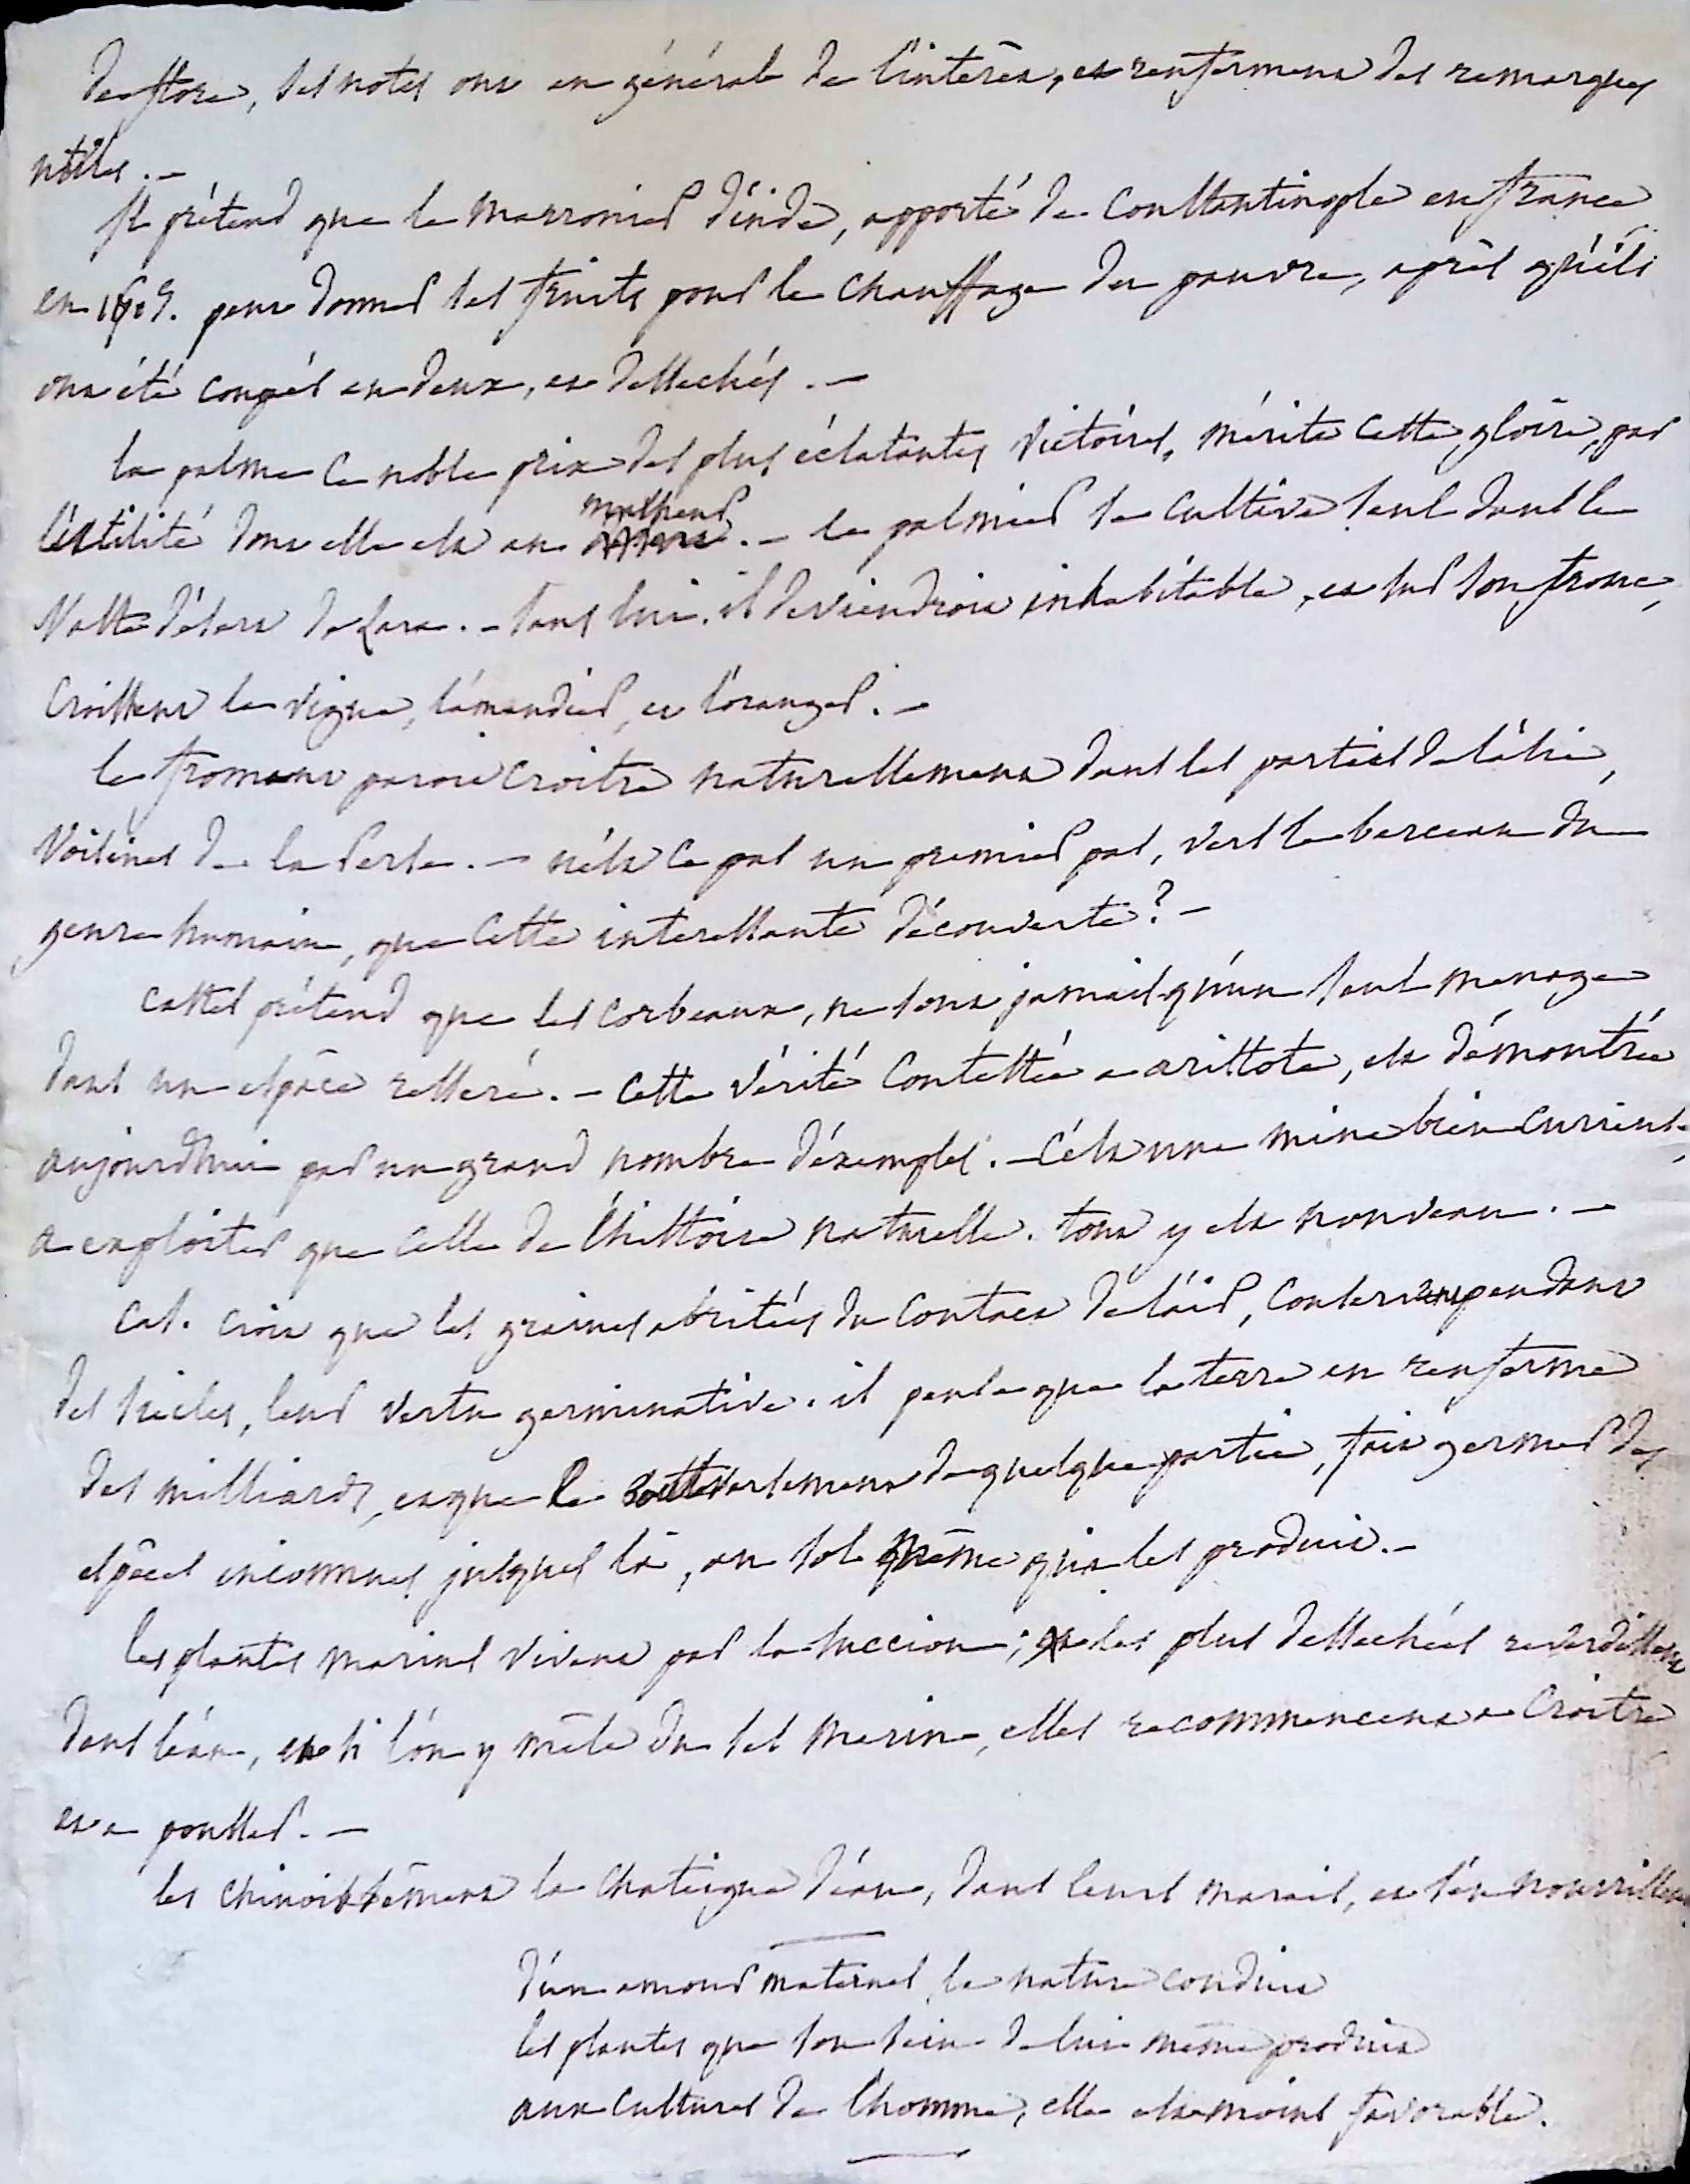 de flore, ses notes ont en général de l'intérêt, et renferment des remarques
utiles. —
Il prétend que le marronier d'inde, apporté de Constantinople en france
en 1615. peut donner ses fruits pour le chauffage du pauvre, après qu'ils
ont été coupés en deux, et dessechés. —
la palme ce noble prix des plus éclatantes victoires, mérite cette gloire, par
l'utilité dont elle est au malheur. — le palmier se cultive seul dans le
vaste désert de Zara. — sans lui, il deviendroit inhabitable, et sur son tronc,
croissent la vigne, l'amandier, et l'oranger. —
le froment paroit croitre naturellement dans les parties de l'asie,
voisines de la Perse. — n'est ce pas un premier pas, vers le berceau du
genre humain, que cette interessante découverte? —
Castel prétend que les corbeaux, ne font jamais qu'un seul menage
dans un espace resseré. — cette vérité contestée a aristote, est démontrée
aujourd'hui par un grand nombre d'éxemples. — C'est une mine bien curieuse
a exploiter que celle de l'histoire naturelle. tout y est nouveau. —
Cas. croit que les graines abritées du contact de l'air, conservent pendant
des siècles, leur vertu germinative. il pense que la terre en renferme
des milliards, et que le bouleversement de quelque partie, fait germer des
espèces inconnues jusques là, au sol même qui les produit. —
les plantes marines vivent par la succion; les plus dessechées reverdissent
dans l'eau, et si l'on y mêle du sel marin, elles recommencent a croitre
et a pousser. —
les chinois sèment la chataigne d'eau, dans leurs marais, et s'en nourrissent.
d'un amour maternel la nature conduit
les plantes que son sein de lui même produit
aux cultures de l'homme, elle est moins favorable.